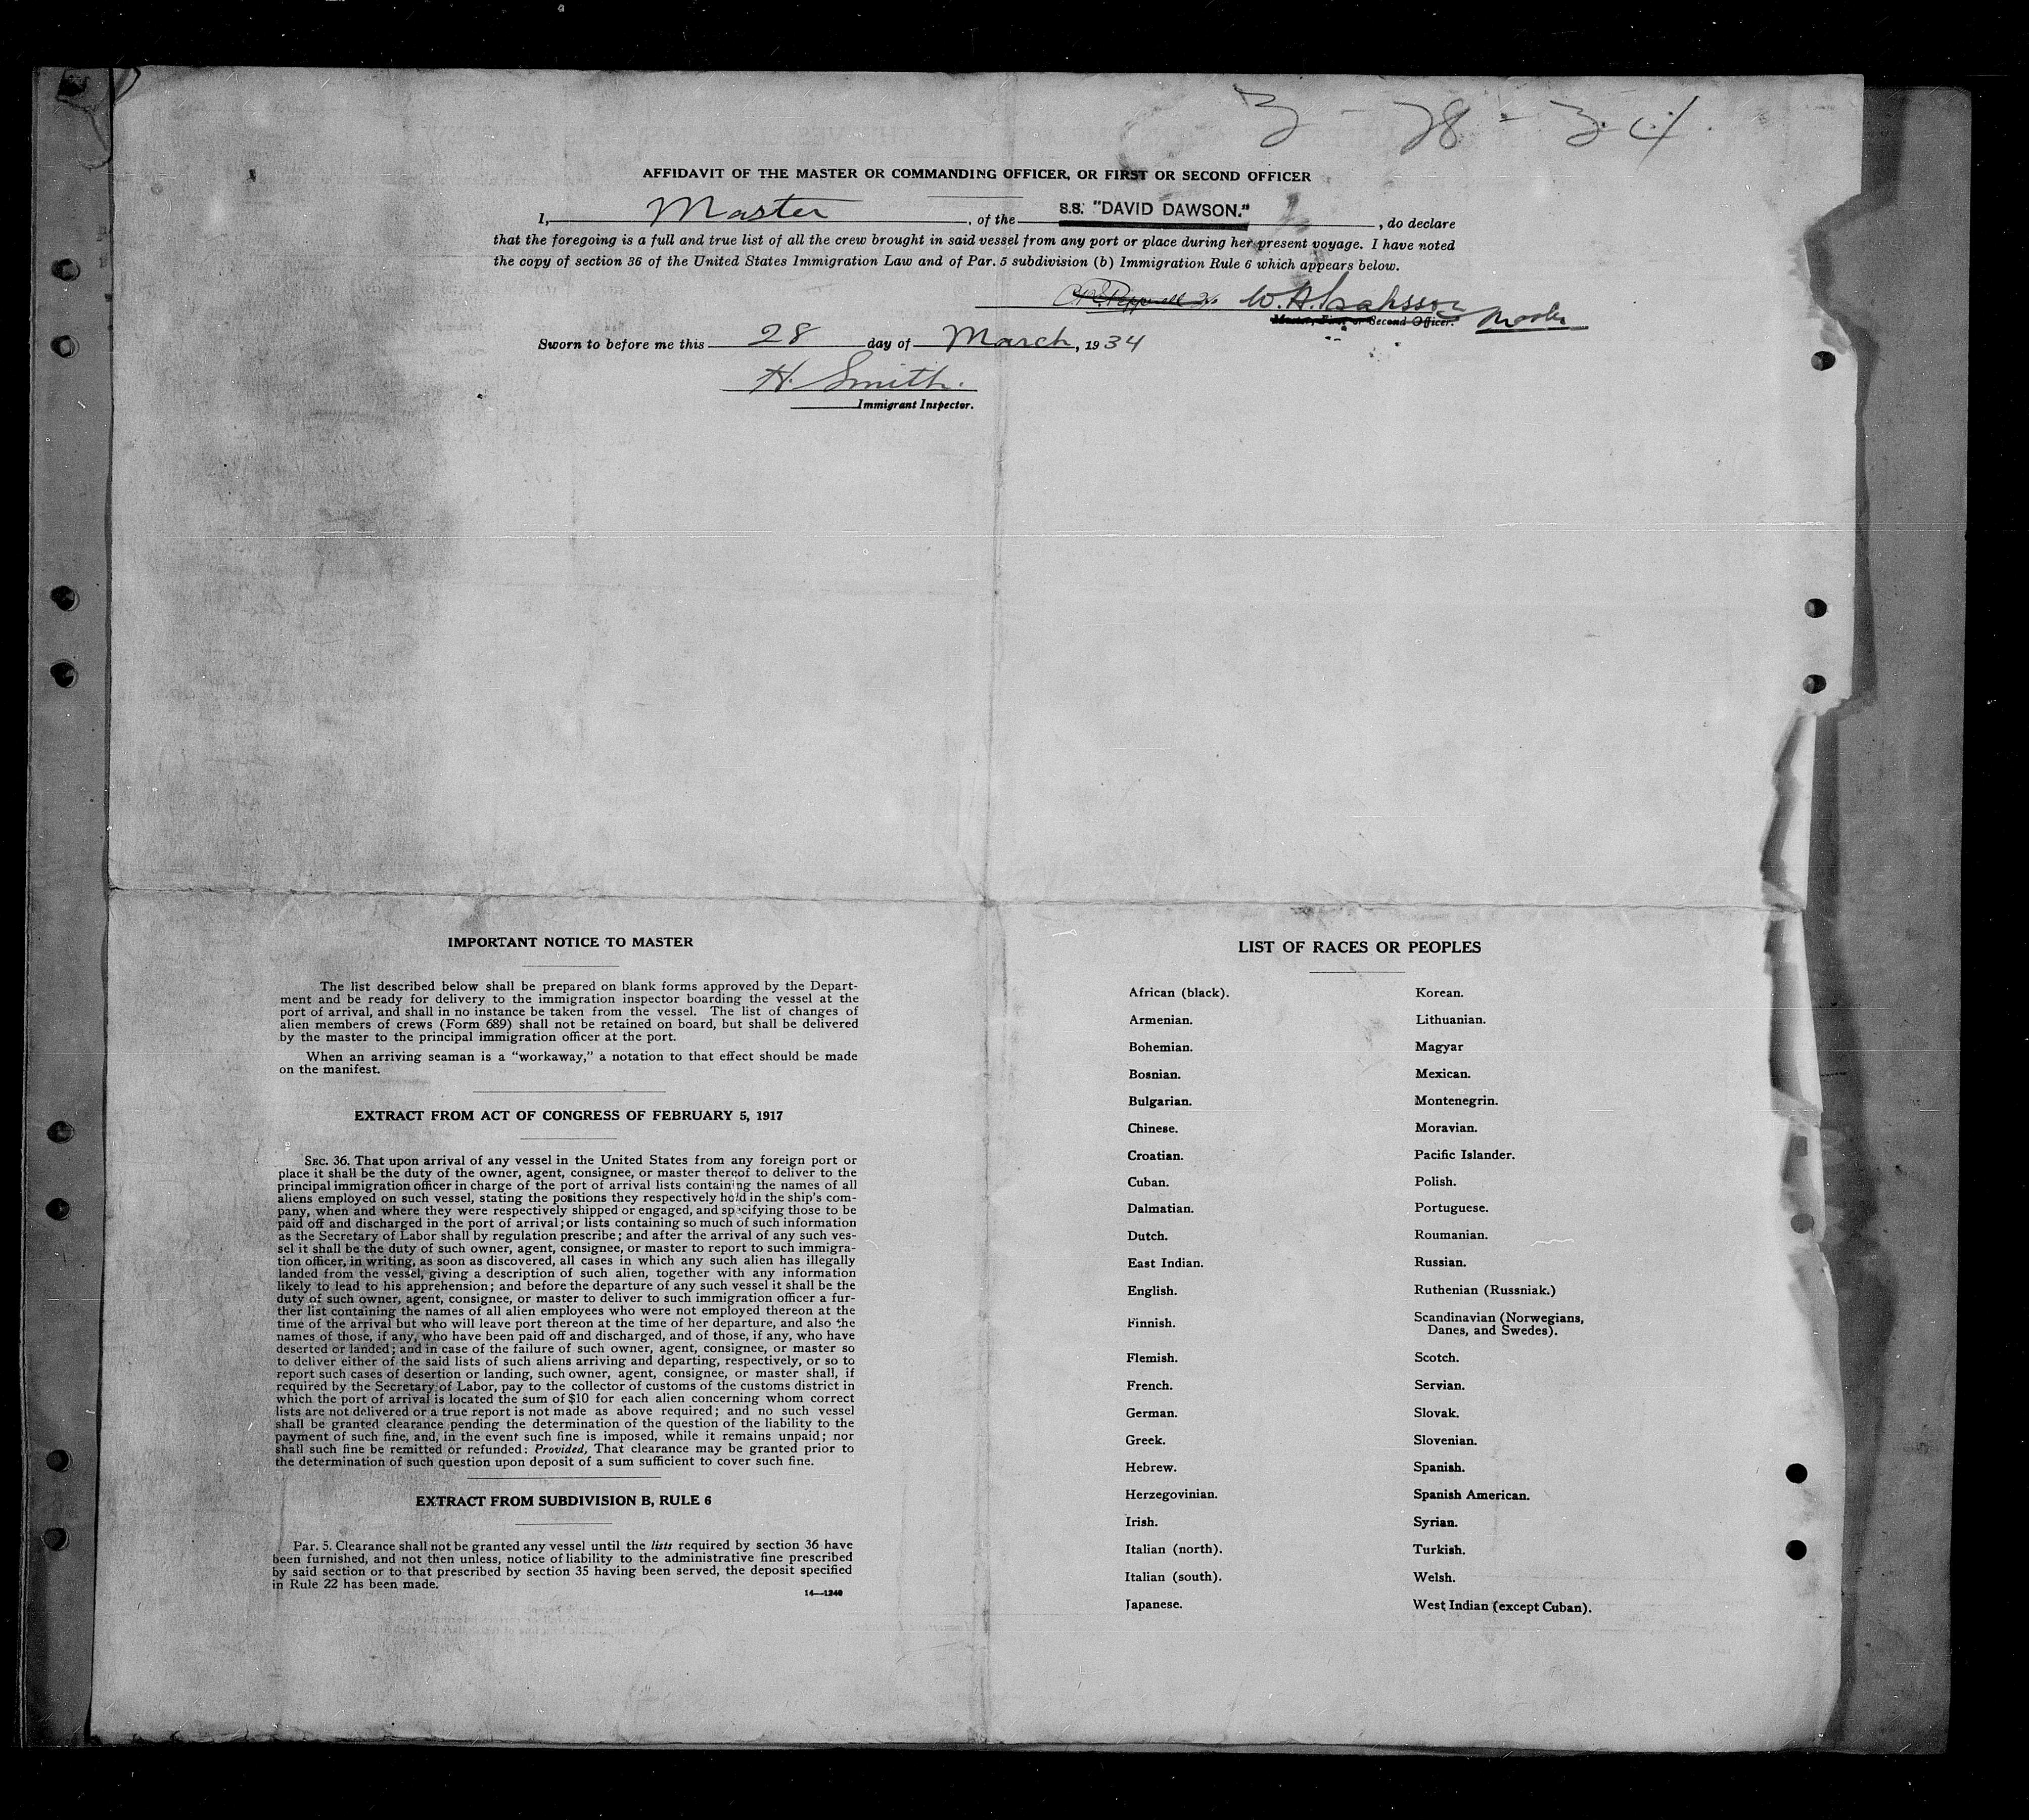 3 - 28 - 34
AFFIDAVIT OF THE MASTER OR COMMANDING OFFICER, OR FIRST OR SECOND OFFICER
I, Master, of the S.S. "DAVID DAWSON." , do declare
that the foregoing is a full and true list of all the crew brought in said vessel from any port or place during her present voyage. I have noted
the copy of section 36 of the United States Immigration Law and of Par. 5 subdivision (b) Immigration Rule 6 which appears below.
W. A. Isaksson
Master, First or Second Officer. Master
Sworn to before me this 28 day of March, 1934
H. Smith.
Immigrant Inspector.
IMPORTANT NOTICE TO MASTER
The list described below shall be prepared on blank forms approved by the Depart-
ment and be ready for delivery to the immigration inspector boarding the vessel at the
port of arrival, and shall in no instance be taken from the vessel. The list of changes of
alien members of crews (Form 689) shall not be retained on board, but shall be delivered
by the master to the principal immigration officer at the port.
When an arriving seaman is a "workaway," a notation to that effect should be made
on the manifest.
EXTRACT FROM ACT OF CONGRESS OF FEBRUARY 5, 1917
SEC. 36. That upon arrival of any vessel in the United States from any foreign port or
place it shall be the duty of the owner, agent, consignee, or master thereof to deliver to the
principal immigration officer in charge of the port of arrival lists containing the names of all
aliens employed on such vessel, stating the positions they respectively hold in the ship's com-
pany, when and where they were respectively shipped or engaged, and specifying those to be
paid off and discharged in the port of arrival; or lists containing so much of such information
as the Secretary of Labor shall by regulation prescribe; and after the arrival of any such ves-
sel it shall be the duty of such owner, agent, consignee, or master to report to such immigra-
tion officer, in writing, as soon as discovered, all cases in which any such alien has illegally
landed from the vessel, giving a description of such alien, together with any information
likely to lead to his apprehension; and before the departure of any such vessel it shall be the
duty of such owner, agent, consignee, or master to deliver to such immigration officer a fur-
ther list containing the names of all alien employees who were not employed thereon at the
time of the arrival but who will leave port thereon at the time of her departure, and also the
names of those, if any, who have been paid off and discharged, and of those, if any, who have
deserted or landed; and in case of the failure of such owner, agent, consignee, or master so
to deliver either of the said lists of such aliens arriving and departing, respectively, or so to
report such cases of desertion or landing, such owner, agent, consignee, or master shall, if
required by the Secretary of Labor, pay to the collector of customs of the customs district in
which the port of arrival is located the sum of $10 for each alien concerning whom correct
lists are not delivered or a true report is not made as above required; and no such vessel
shall be granted clearance pending the determination of the question of the liability to the
payment of such fine, and, in the event such fine is imposed, while it remains unpaid; nor
shall such fine be remitted or refunded: Provided, That clearance may be granted prior to
the determination of such question upon deposit of a sum sufficient to cover such fine.
EXTRACT FROM SUBDIVISION B, RULE 6
Par. 5. Clearance shall not be granted any vessel until the lists required by section 36 have
been furnished, and not then unless, notice of liability to the administrative fine prescribed
by said section or to that prescribed by section 35 having been served, the deposit specified
in Rule 22 has been made.
14—1240
LIST OF RACES OR PEOPLES
African (black).
Armenian.
Bohemian.
Bosnian.
Bulgarian.
Chinese.
Croatian.
Cuban.
Dalmatian.
Dutch.
East Indian.
English.
Finnish.
Flemish.
French.
German.
Greek.
Hebrew.
Herzegovinian.
Irish.
Italian (north).
Italian (south).
Japanese.
Korean.
Lithuanian.
Magyar
Mexican.
Montenegrin.
Moravian.
Pacific Islander.
Polish.
Portuguese.
Roumanian.
Russian.
Ruthenian (Russniak.)
Scandinavian (Norwegians,
Danes, and Swedes).
Scotch.
Servian.
Slovak.
Slovenian.
Spanish.
Spanish American.
Syrian.
Turkish.
Welsh.
West Indian (except Cuban).